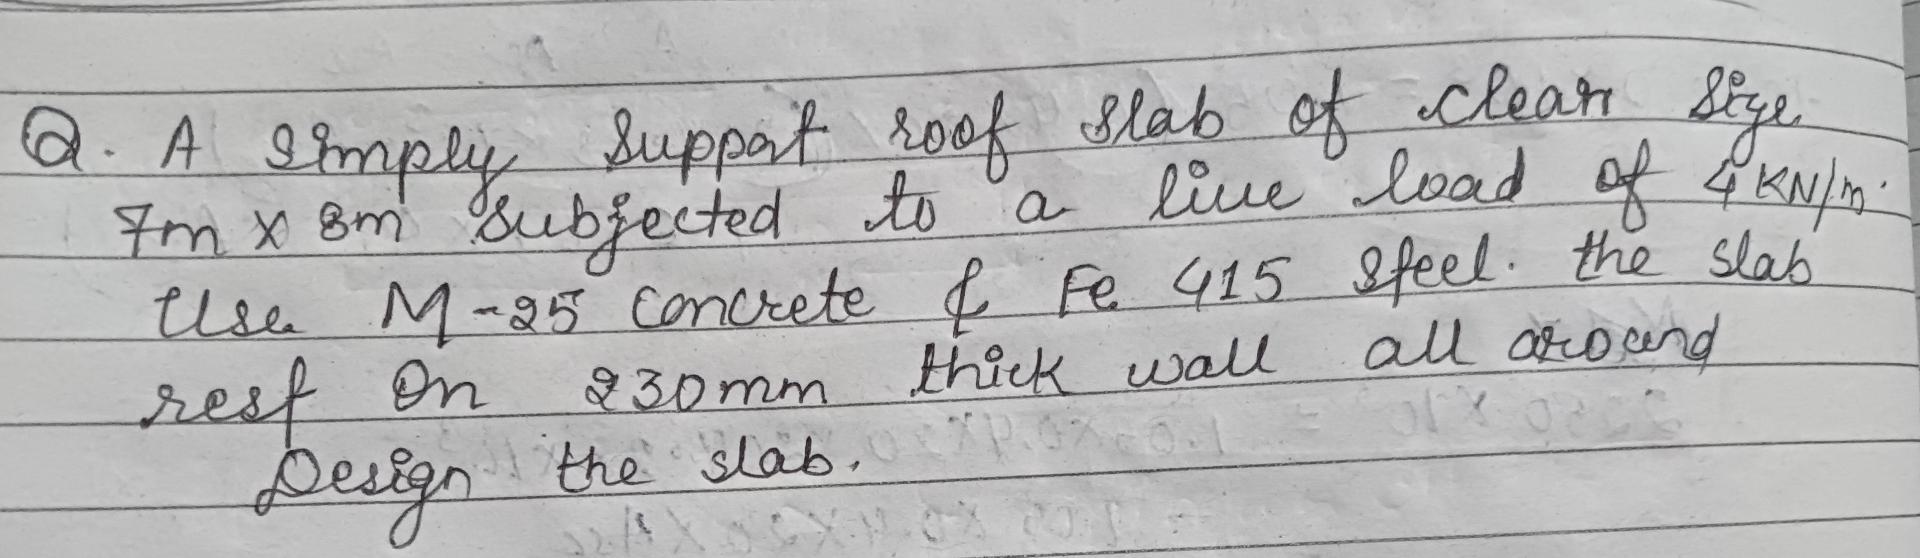 Q. A simply support roof slab of clear size
7m x 8m subjected to a live load of 4 KN/m.
Use M-25 concrete & Fe 415 steel. the slab
rest on 230mm thick wall all around
Design the slab.